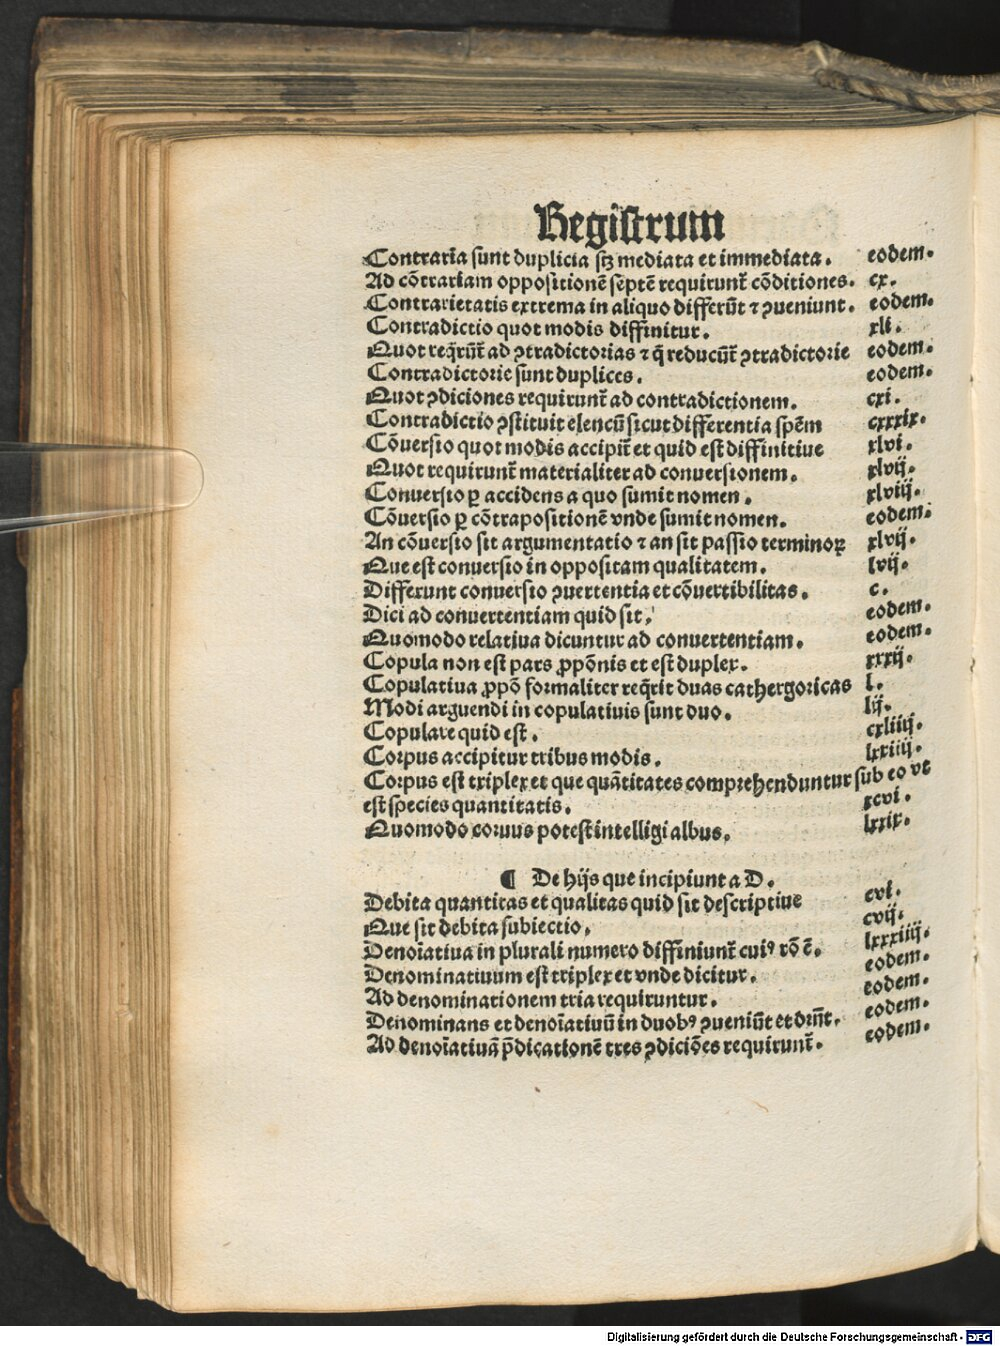 Registrum
Contraria sunt duplicia sꝫ mediata et immediata. eodem.
Ad cōtrariam oppositionē septē requirunt᷑ cōditiones. cx.
Contrarietatis extrema in aliquo differūt ⁊ ꝯueniunt. eodem.
Contradictio quot modis diffinitur. xli.
Quot req̄rūt᷑ ad ꝯtradictorias ⁊ q̄ reducūt᷑ ꝯtradictorie eodem.
Contradictorie sunt duplices. eodem.
Quot ꝯdiciones requirunt᷑ ad contradictionem. cxi.
Contradictio ꝯstituit elencū sicut differentia spēm cxxxix.
Cōuersio quot modis accipit᷑ et quid est diffinitiue xlvi.
Quot requirunt᷑ materialiter ad conuersionem. xlvij.
Conuersio ꝑ accidens a quo sumit nomen. xlviij.
Cōuersio ꝑ cōtrapositionē vnde sumit nomen. eodem.
An cōuersio sit argumentatio ⁊ an sit passio terminoꝝ xlvij.
Que est conuersio in oppositam qualitatem. lvij.
Differunt conuersio ꝯuertentia et cōuertibilitas. c.
Dici ad conuertentiam quid sit. eodem.
Quomodo relatiua dicuntur ad conuertentiam. eodem.
Copula non est pars ꝓpōnis et est duplex. xxxij.
Copulatiua ꝓpō formaliter req̄rit duas cathergoricas l.
Modi arguendi in copulatiuis sunt duo. lij.
Copulare quid est. cxliiij.
Corpus accipitur tribus modis. lxxiiij.
Corpus est triplex et que quātitates comprehenduntur sub eo vt
est species quantitatis. xcvi.
Quomodo coruus potest intelligi albus. lxxix.
¶ De hijs que incipiunt a D.
Debita quantitas et qualitas quid sit descriptiue cvi.
Que sit debita subiectio. cvij.
Denoīatiua in plurali numero diffiniunt᷑ cuiꝰ rō ē. lxxxiiij.
Denominatiuum est triplex et vnde dicitur. eodem.
Ad denominationem tria requiruntur. eodem.
Denominans et denoīatiuū in duobꝰ ꝯueniūt et drn̄t. eodem.
Ad denoīatiuā p̄dicationē tres ꝯdiciōes requirunt᷑. eodem.
Digitalisierung gefördert durch die Deutsche Forschungsgemeinschaft - DFG